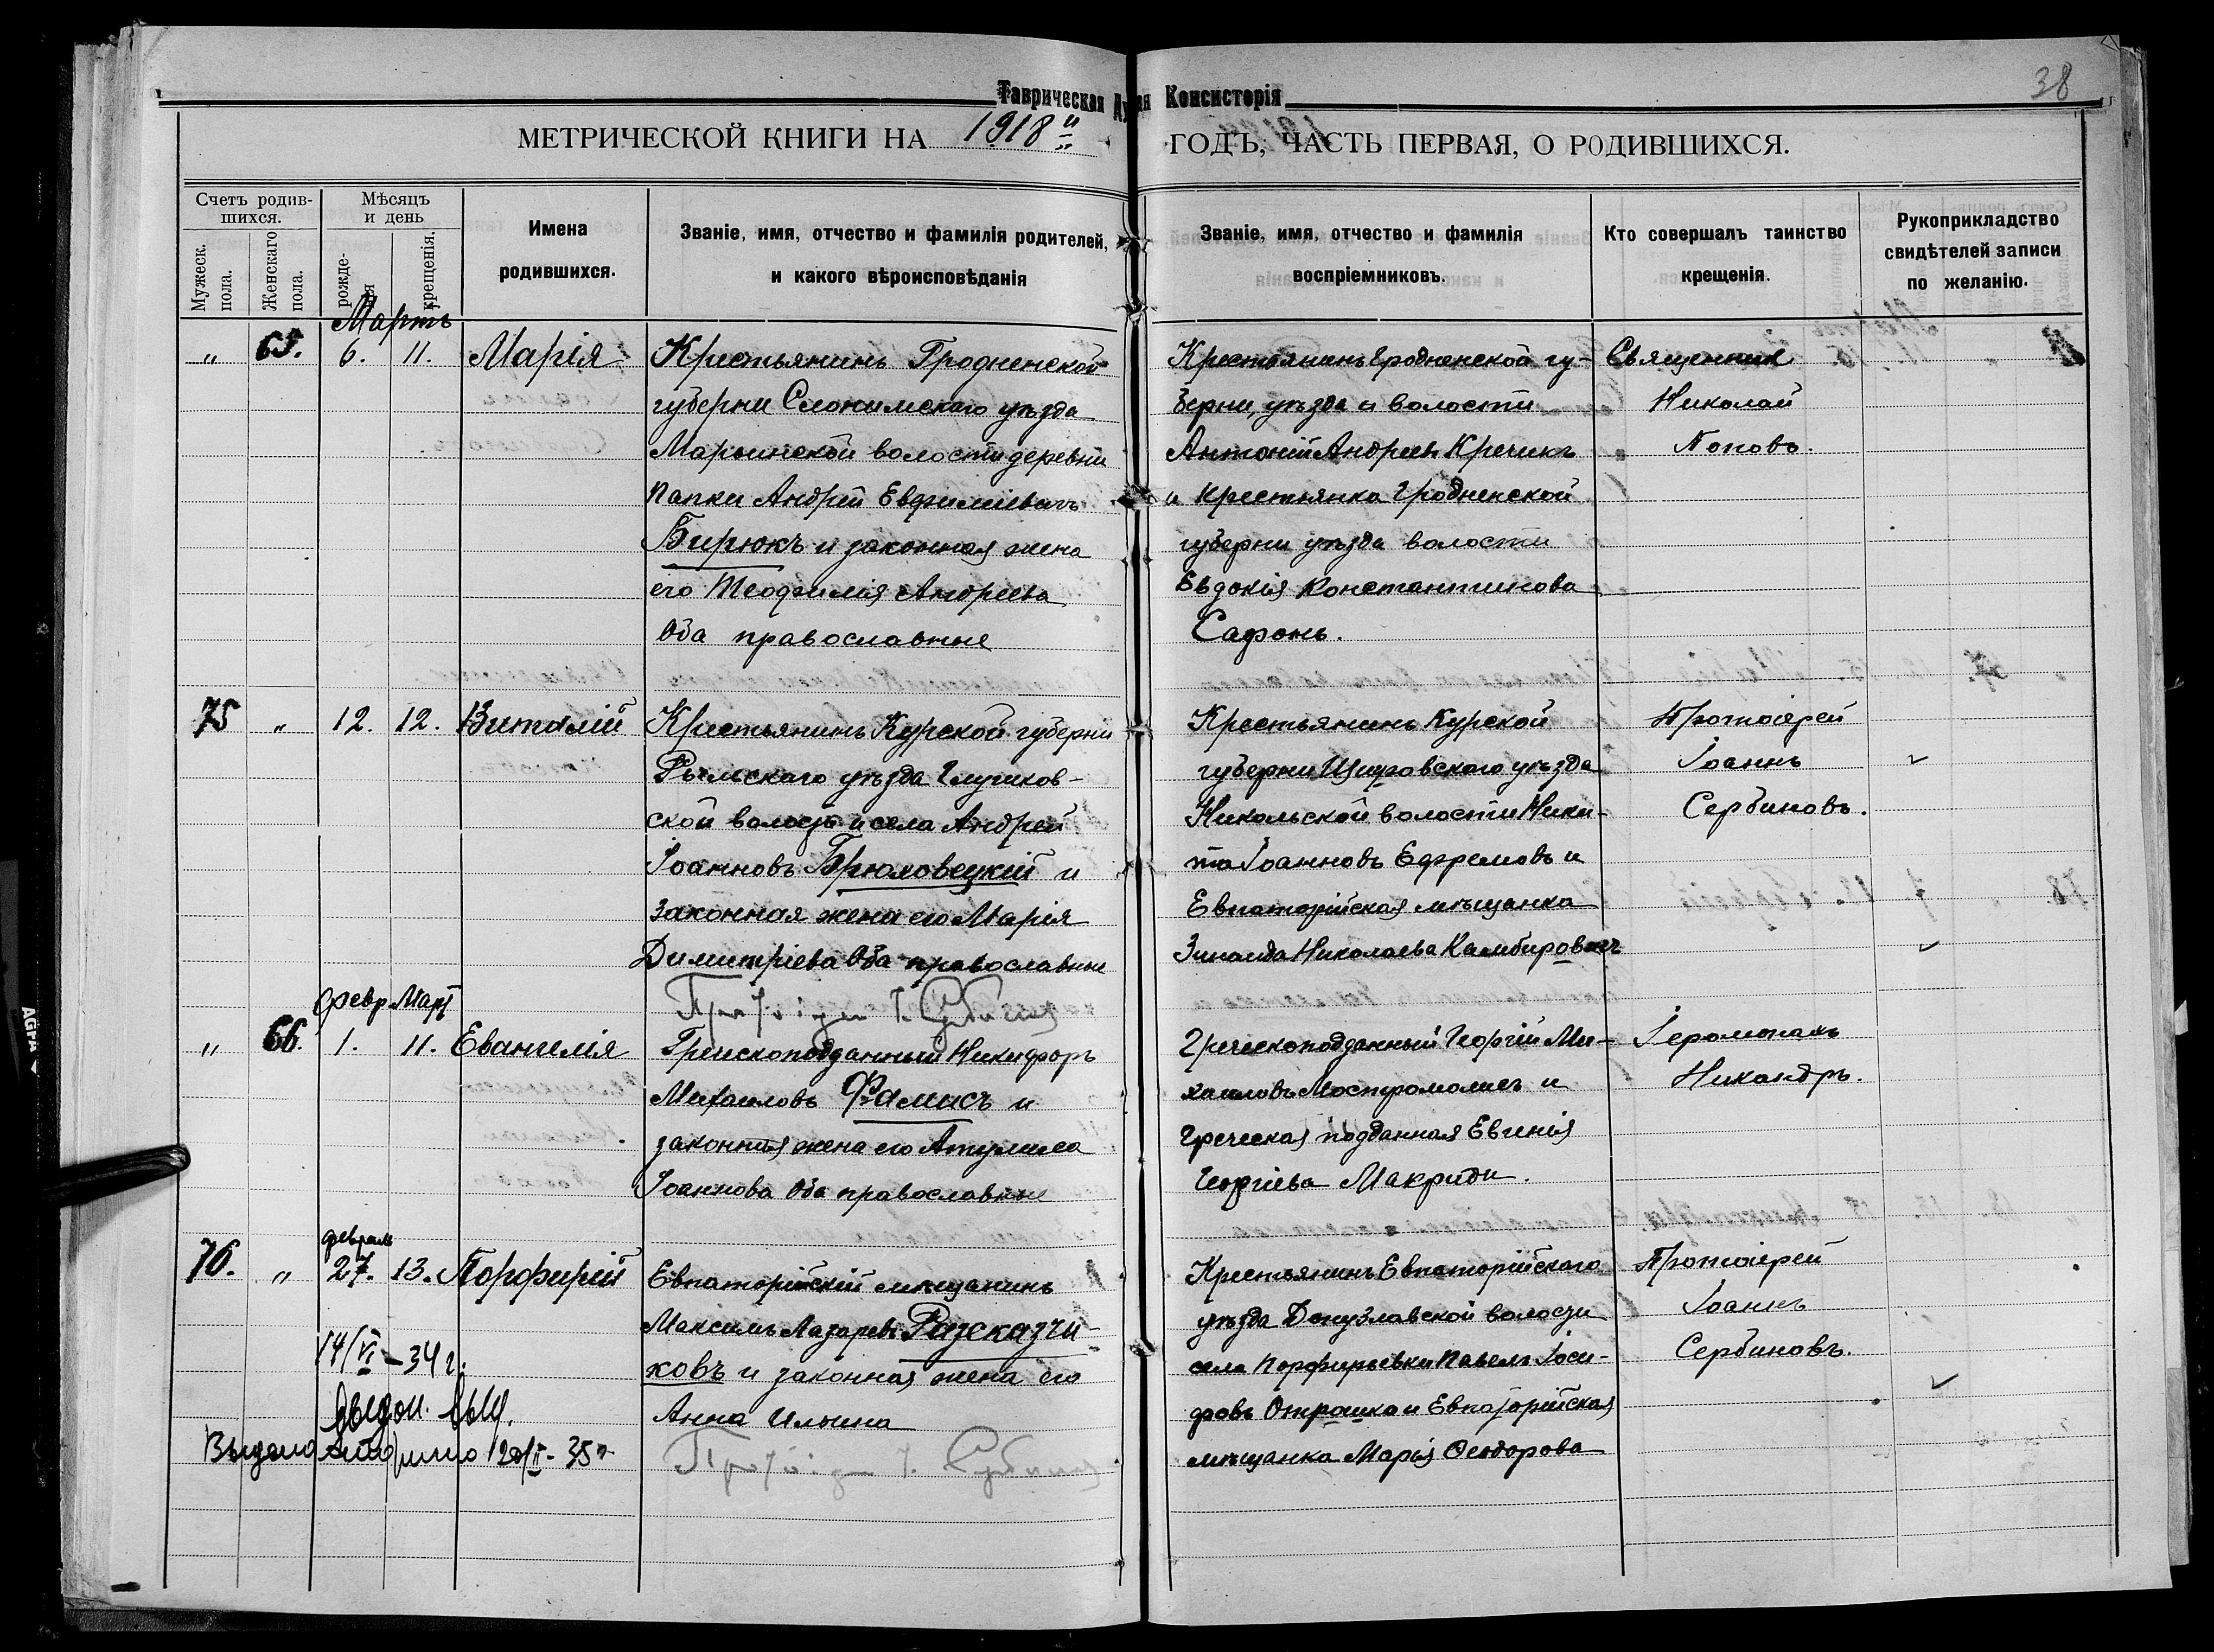 38
Таврическая Дух‑ая Консисторія
МЕТРИЧЕСКОЙ КНИГИ НА 1918й ГОДЪ, ЧАСТЬ ПЕРВАЯ, О РОДИВШИХСЯ.
Счетъ родившихся.
Мужеск. пола.
Женскаго пола.
Мѣсяцъ и день
рожденія
крещенія.
Имена родившихся.
Званіе, имя, отчество и фамилія родителей, и какого вѣроисповѣданія
Званіе, имя, отчество и фамилія воспріемниковъ.
Кто совершалъ таинство крещенія.
Рукоприкладство свидѣтелей записи по желанію.
Мартъ
" 65. 6. 11. Марія
Крестьянинъ Гродненской
губерніи Слонимскаго уѣзда
Марьинской волости деревни
Папки Андрей Евфиміевичъ
Бирюкъ и законная жена
его Теофилія Андреева
Оба православные
Крестьянинъ Гродненской гу-
берніи, уѣзда и волости
Антоній Андреевъ Кречикъ
и крестьянка Гродненской
губерніи уѣзда волости
Евдокія Константинова
Сафонъ.
Священник
Николай
Поповъ.
75 " 12. 12. Виталій
Крестьянинъ Курской губерніи
Рыльскаго уѣзда Глушков-
ской волости и села Андрей
Іоанновъ Брюховецкій и
законная жена его Марія
Димитріева Оба православные
Протоіерей І. Сербинов
Крестьянинъ Курской
губерніи Щигровскаго уѣзда
Никольской волости Ники-
та Іоанновъ Ефремовъ и
Евпаторійская мѣщанка
Зинаида Николаева Камбировичъ
Протоіерей
Іоаннъ
Сербиновъ.
Февр. Март
" 66. 1. 11. Евангелія
Греческоподданный Никифоръ
Михаиловъ Фамисъ и
законная жена его
Іоаннова Оба православные
Греческоподданный Георгій Ми-
хаиловъ Мостромолисъ и
Греческая подданная Евгенія
Георгіева Макриди.
Іеромонахъ
Никандръ.
Февраль
76. " 27. 13. Порфирій
Евпаторійскій мѣщанинъ
Максимъ Лазаревъ Разсказчи-
ковъ и законная жена его
Анна Ильина
Протоіерей І. Сербинов
Крестьянинъ Евпаторійскаго
уѣзда Донузлавской волости
села Порфирьевки Павелъ Іоси-
фовъ Отрошка и Евпаторійская
мѣщанка Марія Ѳеодорова
Протоіерей
Іоаннъ
Сербиновъ.
14/VI – 34 г.
выд.
Выдано
35 г.